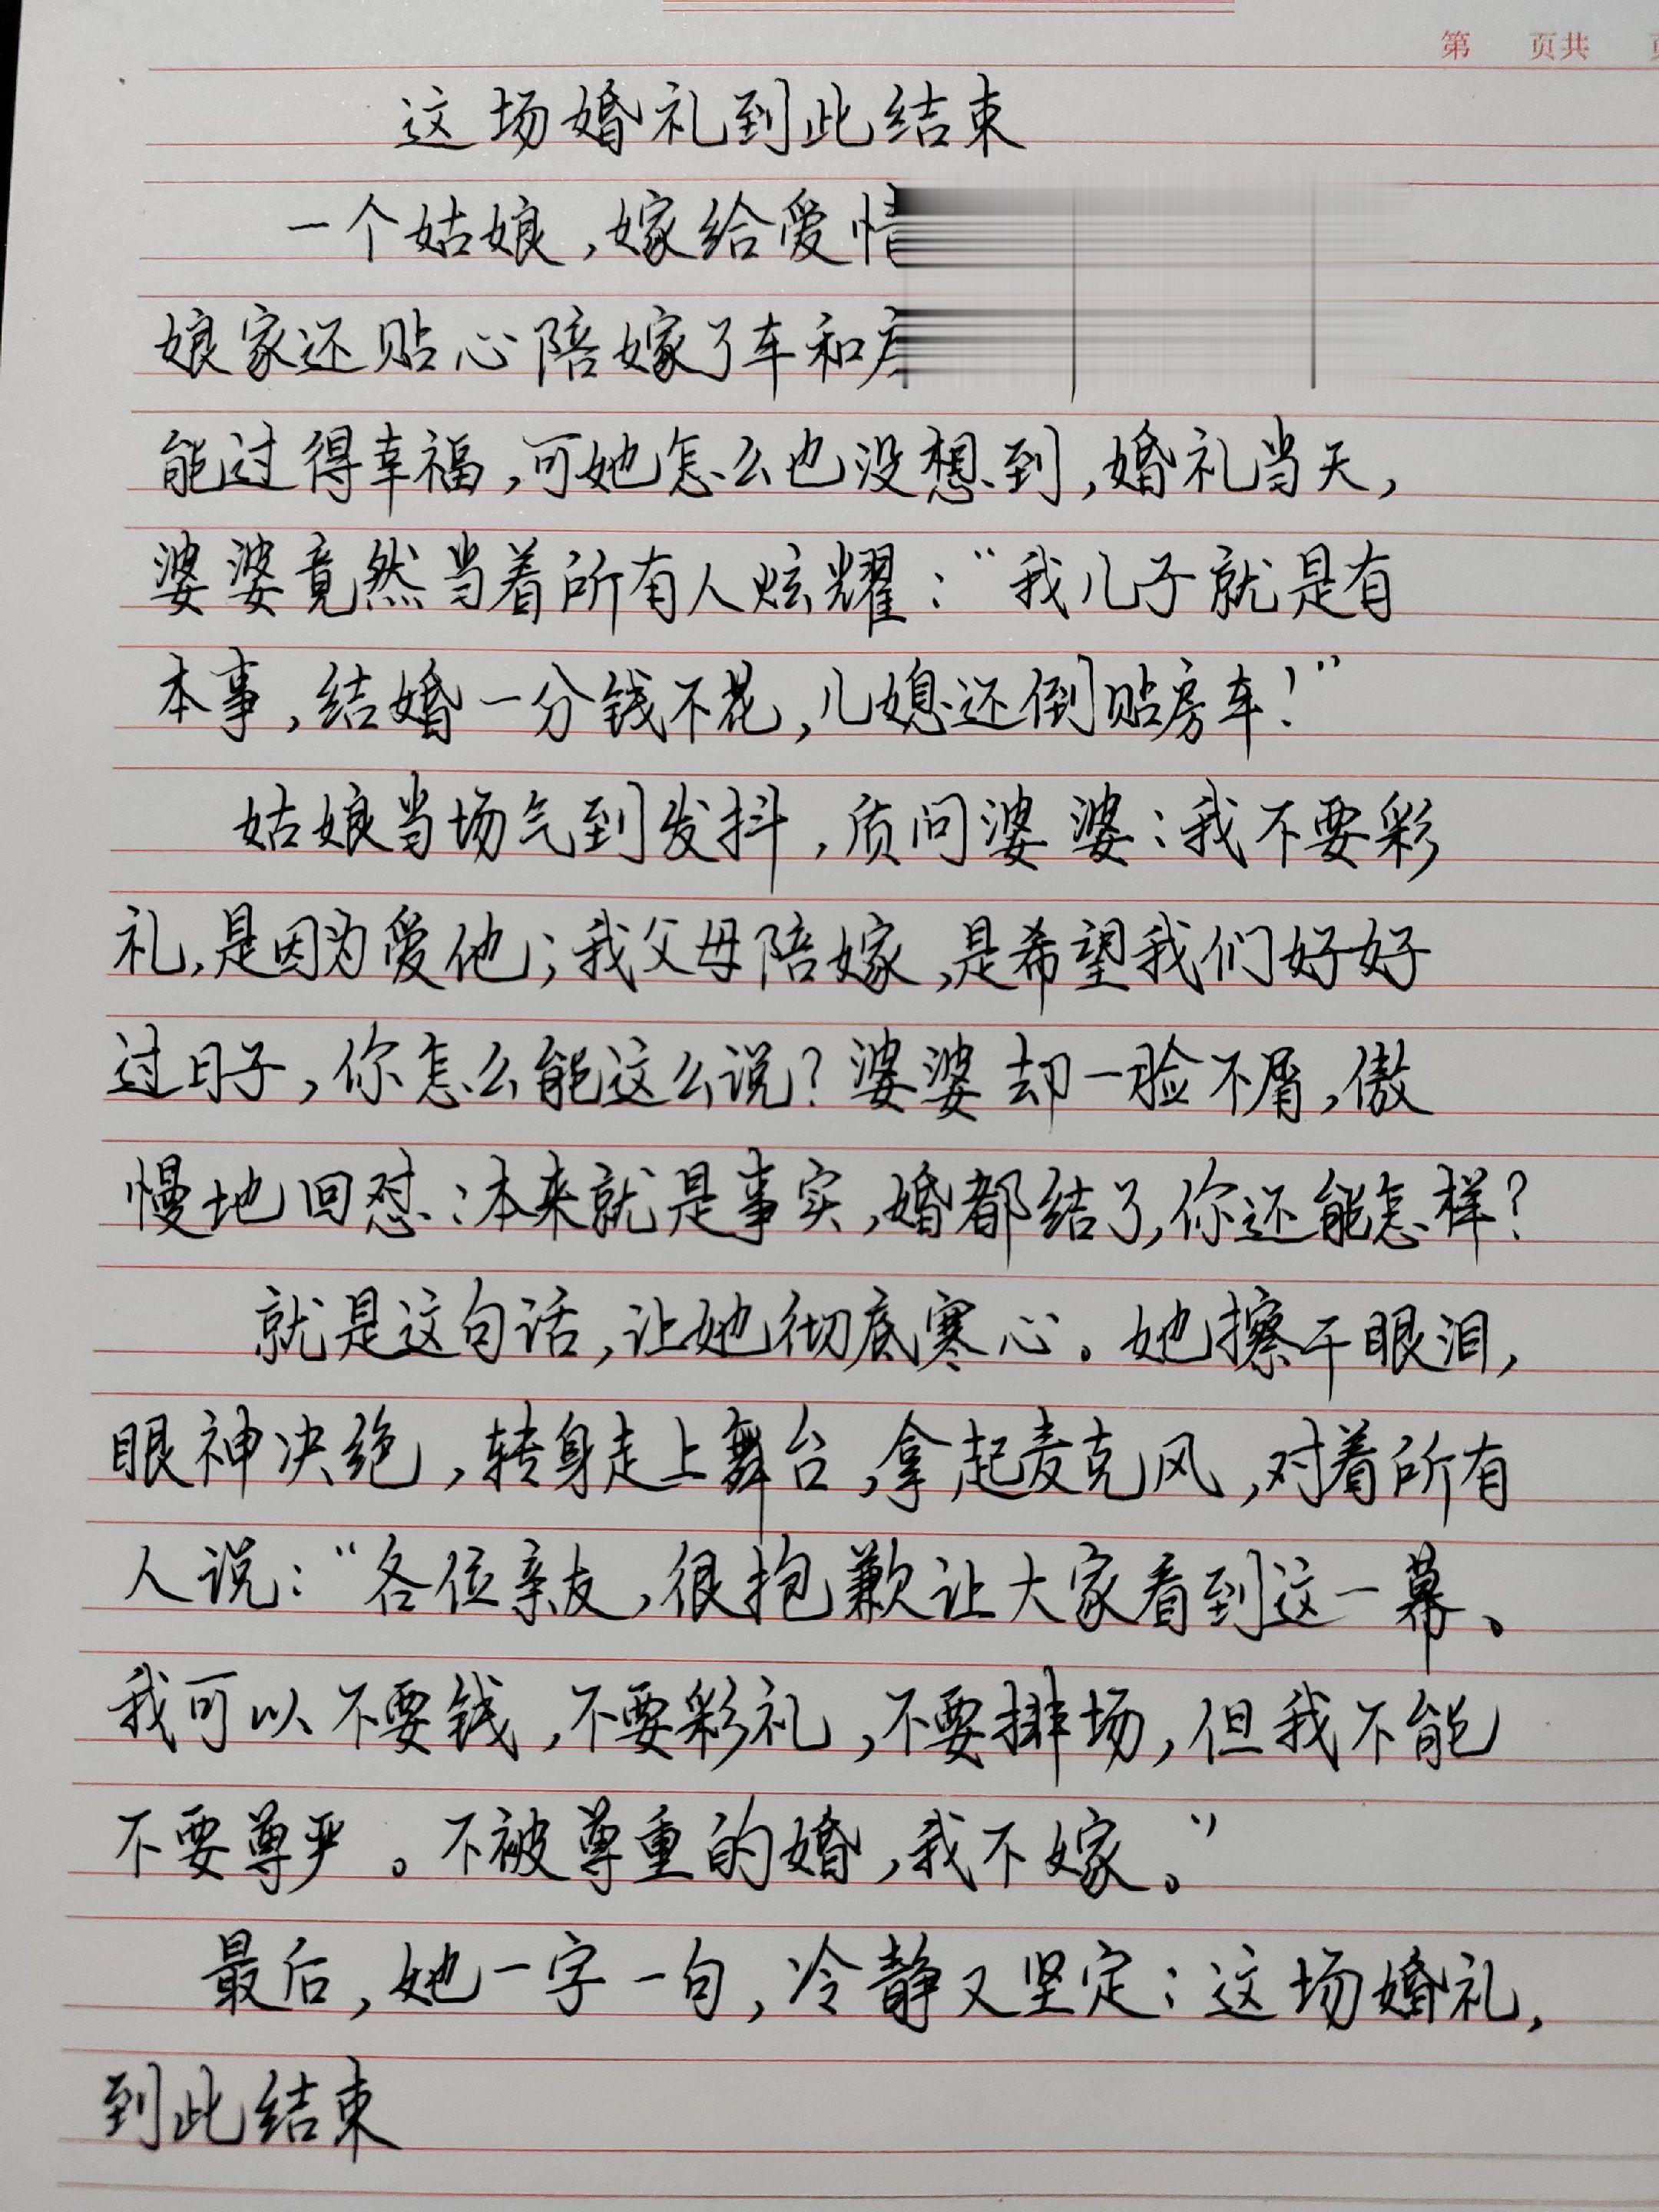 第 页共
这场婚礼到此结束
一个姑娘,嫁给爱情
娘家还贴心陪嫁了车和
能过得幸福,可她怎么也没想到,婚礼当天,
婆婆竟然当着所有人炫耀:“我儿子就是有
本事,结婚一分钱不花,儿媳还倒贴房车!”
姑娘当场气到发抖,质问婆婆:我不要彩
礼,是因为爱他;我父母陪嫁,是希望我们好好
过日子,你怎么能这么说?婆婆却一脸不屑,傲
慢地回怼:本来就是事实,婚都结了,你还能怎样?
就是这句话,让她彻底寒心。她擦干眼泪,
眼神决绝,转身走上舞台,拿起麦克风,对着所有
人说:“各位亲友,很抱歉让大家看到这一幕、
我可以不要钱,不要彩礼,不要排场,但我不能
不要尊严。不被尊重的婚,我不嫁。”
最后,她一字一句,冷静又坚定:这场婚礼,
到此结束